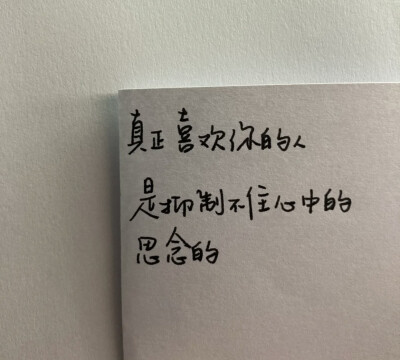 真正喜欢你的人
是抑制不住心中的
思念的